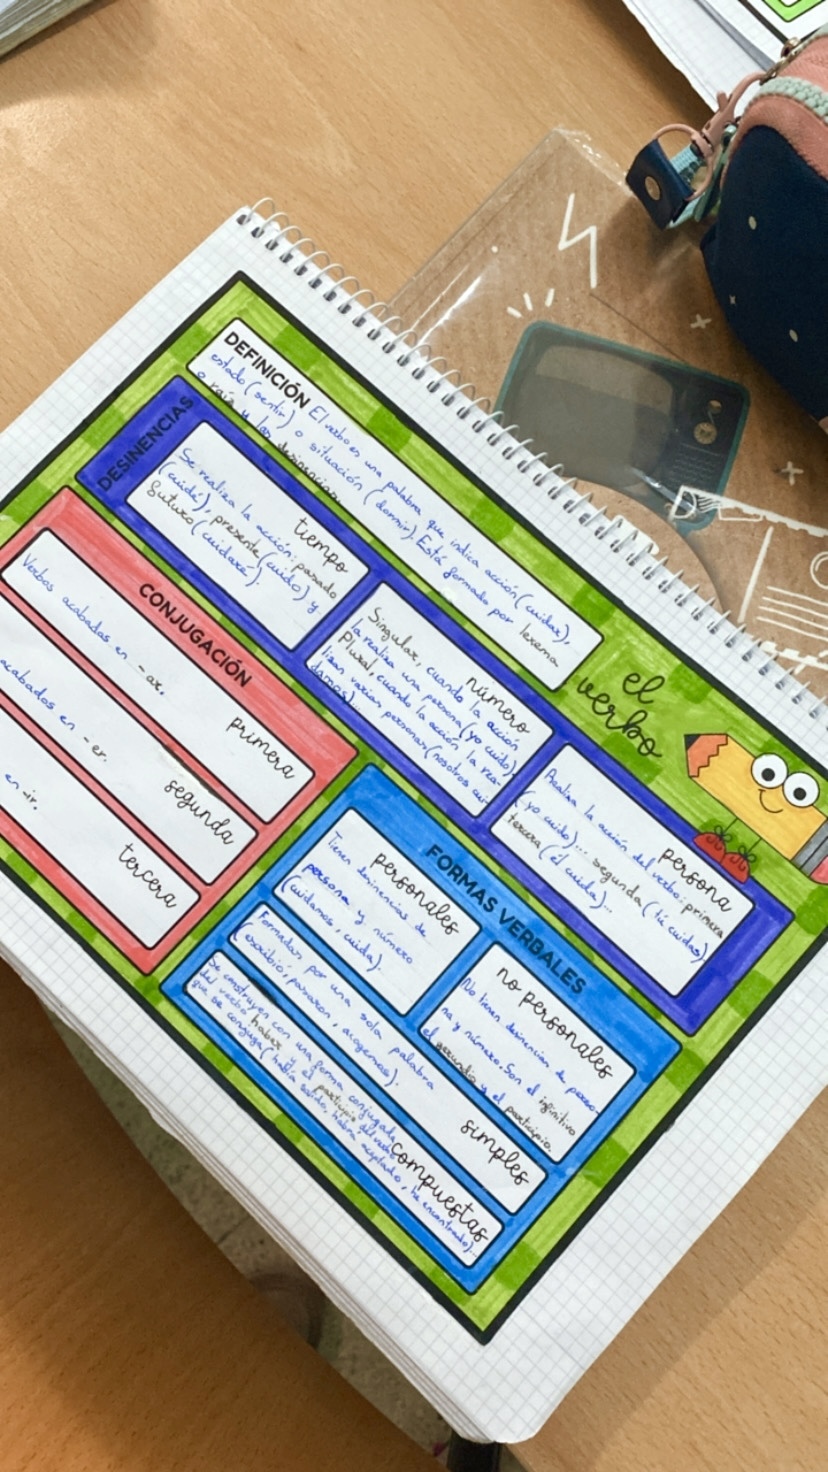 el
verbo
DEFINICIÓN El verbo es una palabra que indica acción (cuidar),
estado (sentir) o situación (dormir). Está formado por lexema
o raíz y las desinencias.
DESINENCIAS
tiempo
Se realiza la acción: pasado
(cuidé), presente (cuido) y
futuro (cuidaré)
número
Singular, cuando la acción
la realiza una persona (yo cuido).
Plural, cuando la acción la rea-
lizan varias personas (nosotros cui-
damos)...
persona
Realiza la acción del verbo: primera
(yo cuido)... segunda (tú cuidas)
tercera (él cuida)...
CONJUGACIÓN
primera
Verbos acabados en -ar.
segunda
acabados en -er.
tercera
en -ir.
FORMAS VERBALES
personales
Tienen desinencias de
persona y número
(cuidamos, cuida).
no personales
No tienen desinencias de perso-
na y número. Son el infinitivo
el gerundio y el participio.
simples
Formadas por una sola palabra
(escribió, pasaron, acogemos).
compuestas
Se construyen con una forma conjugada
del verbo haber y el participio del verbo
que se conjuga (había salido, habrá aceptado, he encontrado)...